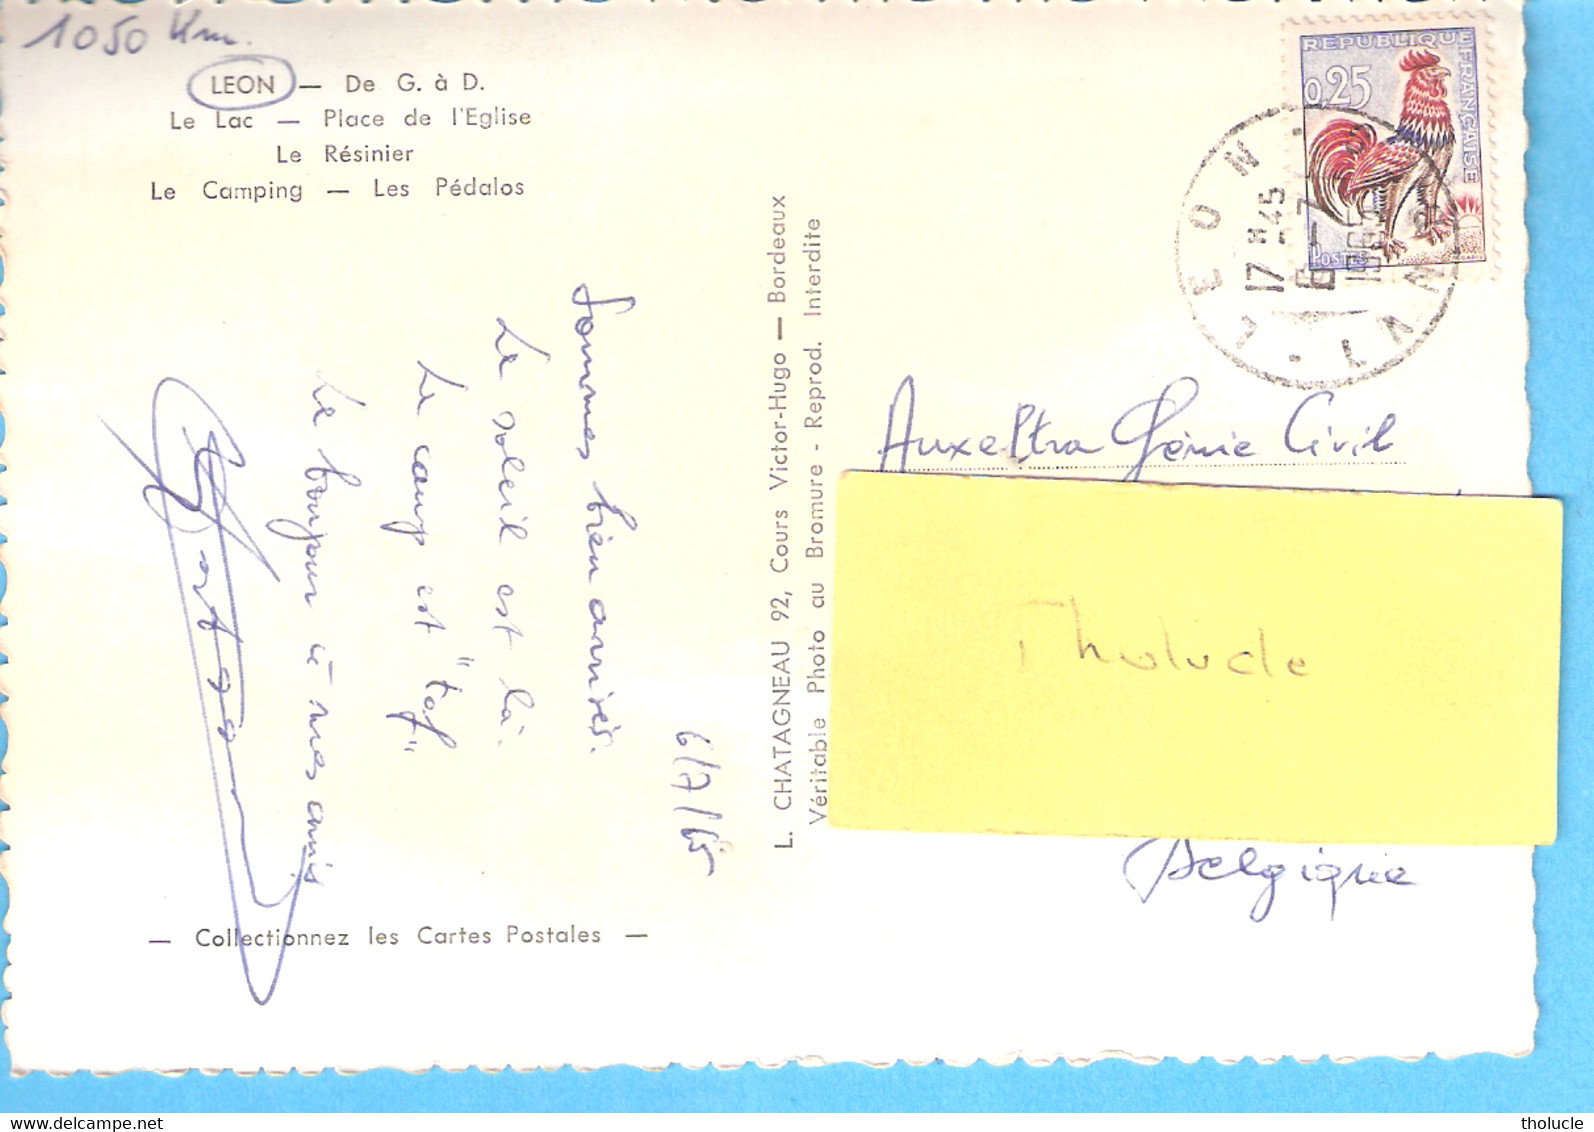 1050 Km.
LEON — De G. à D.
Le Lac — Place de l'Eglise
Le Résinier
Le Camping — Les Pédalos
6/7/65
Sommes bien arrivés.
Le soleil est là.
Le camp est "tof"
Le bonjour à mes amis
— Collectionnez les Cartes Postales —
L. CHATAGNEAU 92, Cours Victor-Hugo — Bordeaux
Véritable Photo au Bromure - Reprod. Interdite
REPUBLIQUE FRANÇAISE
0,25
POSTES
LEON
17 H 45
6-7
1965
LANDES
Auxeltra Génie Civil
Tholucle
Belgique
tholucle